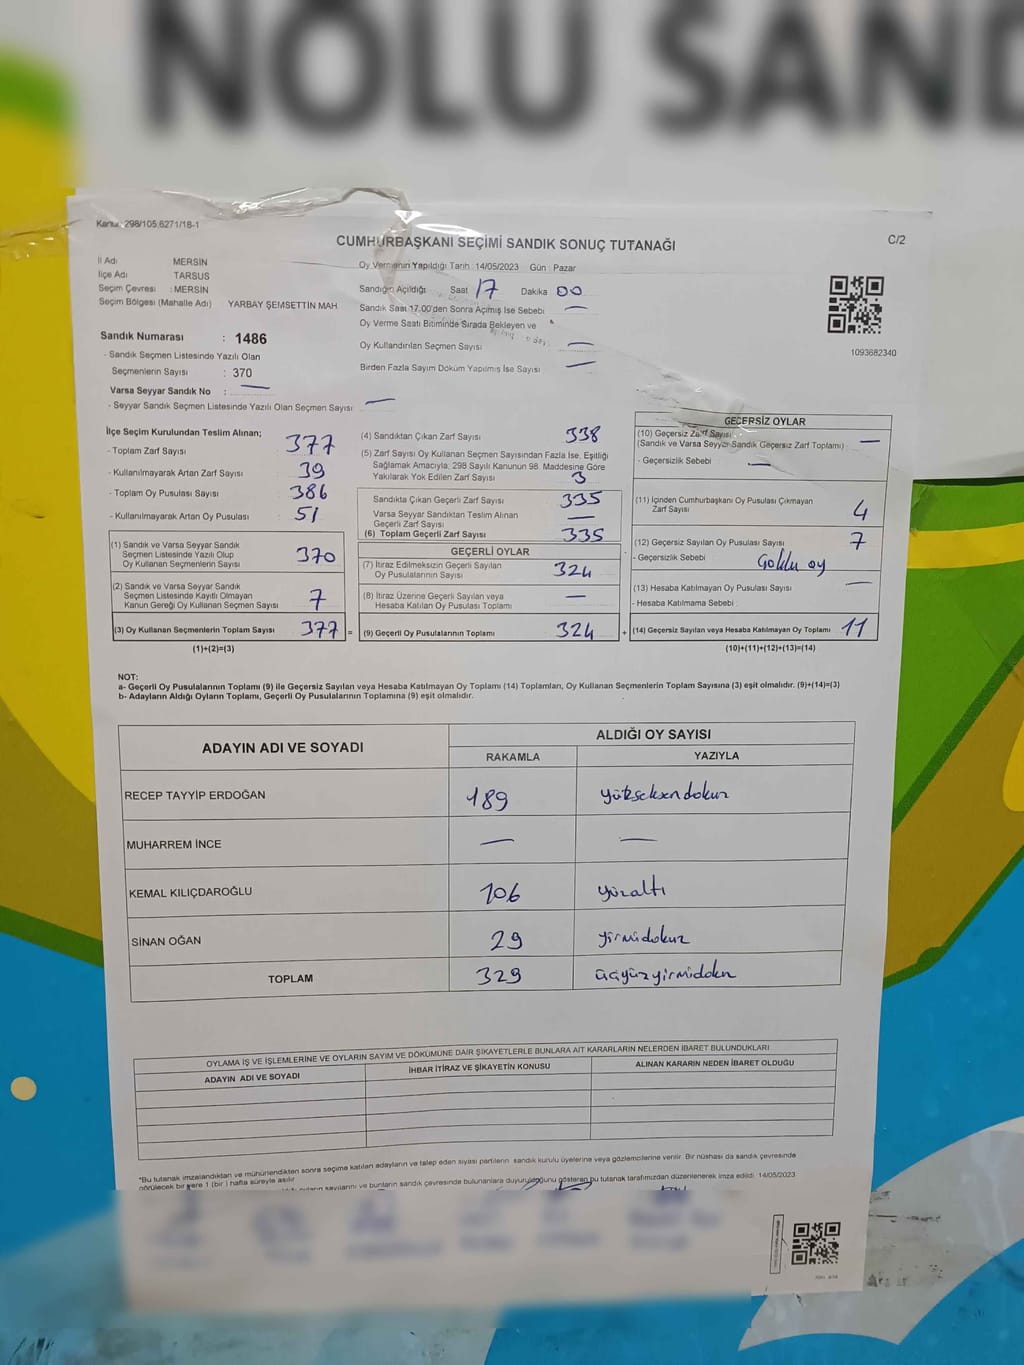 NOLU SAND
Kanun: 298/105,6271/18-1
CUMHURBAŞKANI SEÇİMİ SANDIK SONUÇ TUTANAĞI
C/2
İl Adı MERSİN
İlçe Adı TARSUS
Seçim Çevresi : MERSİN
Seçim Bölgesi (Mahalle Adı) YARBAY ŞEMSETTİN MAH.
Sandık Numarası : 1486
- Sandık Seçmen Listesinde Yazılı Olan
Seçmenlerin Sayısı : 370
Varsa Seyyar Sandık No : —
- Seyyar Sandık Seçmen Listesinde Yazılı Olan Seçmen Sayısı : —
Oy Vermenin Yapıldığı Tarih : 14/05/2023 Gün : Pazar
Sandığın Açıldığı Saat 17 Dakika 00
Sandık Saat 17.00'den Sonra Açılmış İse Sebebi —
Oy Verme Saati Bitiminde Sırada Bekleyen ve
Oy Kullandırılan Seçmen Sayısı —
Birden Fazla Sayım Döküm Yapılmış İse Sayısı —
1093682340
İlçe Seçim Kurulundan Teslim Alınan;
- Toplam Zarf Sayısı 377
- Kullanılmayarak Artan Zarf Sayısı 39
- Toplam Oy Pusulası Sayısı 386
- Kullanılmayarak Artan Oy Pusulası 51
(1) Sandık ve Varsa Seyyar Sandık
Seçmen Listesinde Yazılı Olup
Oy Kullanan Seçmenlerin Sayısı 370
(2) Sandık ve Varsa Seyyar Sandık
Seçmen Listesinde Kayıtlı Olmayan
Kanun Gereği Oy Kullanan Seçmen Sayısı 7
(3) Oy Kullanan Seçmenlerin Toplam Sayısı 377 =
(1)+(2)=(3)
(4) Sandıktan Çıkan Zarf Sayısı 338
(5) Zarf Sayısı Oy Kullanan Seçmen Sayısından Fazla İse, Eşitliği
Sağlamak Amacıyla, 298 Sayılı Kanunun 98. Maddesine Göre
Yakılarak Yok Edilen Zarf Sayısı 3
Sandıkta Çıkan Geçerli Zarf Sayısı 335
Varsa Seyyar Sandıktan Teslim Alınan
Geçerli Zarf Sayısı —
(6) Toplam Geçerli Zarf Sayısı 335
GEÇERLİ OYLAR
(7) İtiraz Edilmeksizin Geçerli Sayılan
Oy Pusulalarının Sayısı 324
(8) İtiraz Üzerine Geçerli Sayılan veya
Hesaba Katılan Oy Pusulası Toplamı —
(9) Geçerli Oy Pusulalarının Toplamı 324 +
GEÇERSİZ OYLAR
(10) Geçersiz Zarf Sayısı
(Sandık ve Varsa Seyyar Sandık Geçersiz Zarf Toplamı) —
- Geçersizlik Sebebi : —
(11) İçinden Cumhurbaşkanı Oy Pusulası Çıkmayan
Zarf Sayısı 4
(12) Geçersiz Sayılan Oy Pusulası Sayısı 7
- Geçersizlik Sebebi : Çoklu oy
(13) Hesaba Katılmayan Oy Pusulası Sayısı —
- Hesaba Katılmama Sebebi :
(14) Geçersiz Sayılan veya Hesaba Katılmayan Oy Toplamı 11
(10)+(11)+(12)+(13)=(14)
NOT:
a- Geçerli Oy Pusulalarının Toplamı (9) ile Geçersiz Sayılan veya Hesaba Katılmayan Oy Toplamı (14) Toplamları, Oy Kullanan Seçmenlerin Toplam Sayısına (3) eşit olmalıdır. (9)+(14)=(3)
b- Adayların Aldığı Oyların Toplamı, Geçerli Oy Pusulalarının Toplamına (9) eşit olmalıdır.
ADAYIN ADI VE SOYADI ALDIĞI OY SAYISI
RAKAMLA YAZIYLA
RECEP TAYYİP ERDOĞAN 189 yüzseksendokuz
MUHARREM İNCE — —
KEMAL KILIÇDAROĞLU 106 yüzaltı
SİNAN OĞAN 29 yirmidokuz
TOPLAM 329
OYLAMA İŞ VE İŞLEMLERİNE VE OYLARIN SAYIM VE DÖKÜMÜNE DAİR ŞİKAYETLERLE BUNLARA AİT KARARLARIN NELERDEN İBARET BULUNDUKLARI
ADAYIN ADI VE SOYADI İHBAR İTİRAZ VE ŞİKAYETİN KONUSU ALINAN KARARIN NEDEN İBARET OLDUĞU
*Bu tutanak imzalandıktan ve mühürlendikten sonra seçime katılan adayların ve talep eden siyasi partilerin sandık kurulu üyelerine veya gözlemcilerine verilir. Bir nüshası da sandık çevresinde
görülecek bir yere 1 (bir) hafta süreyle asılır.
oyların sayılarını ve bunların sandık çevresinde bulunanlara duyurulduğunu gösteren bu tutanak tarafımızdan düzenlenerek imza edildi. 14/05/2023